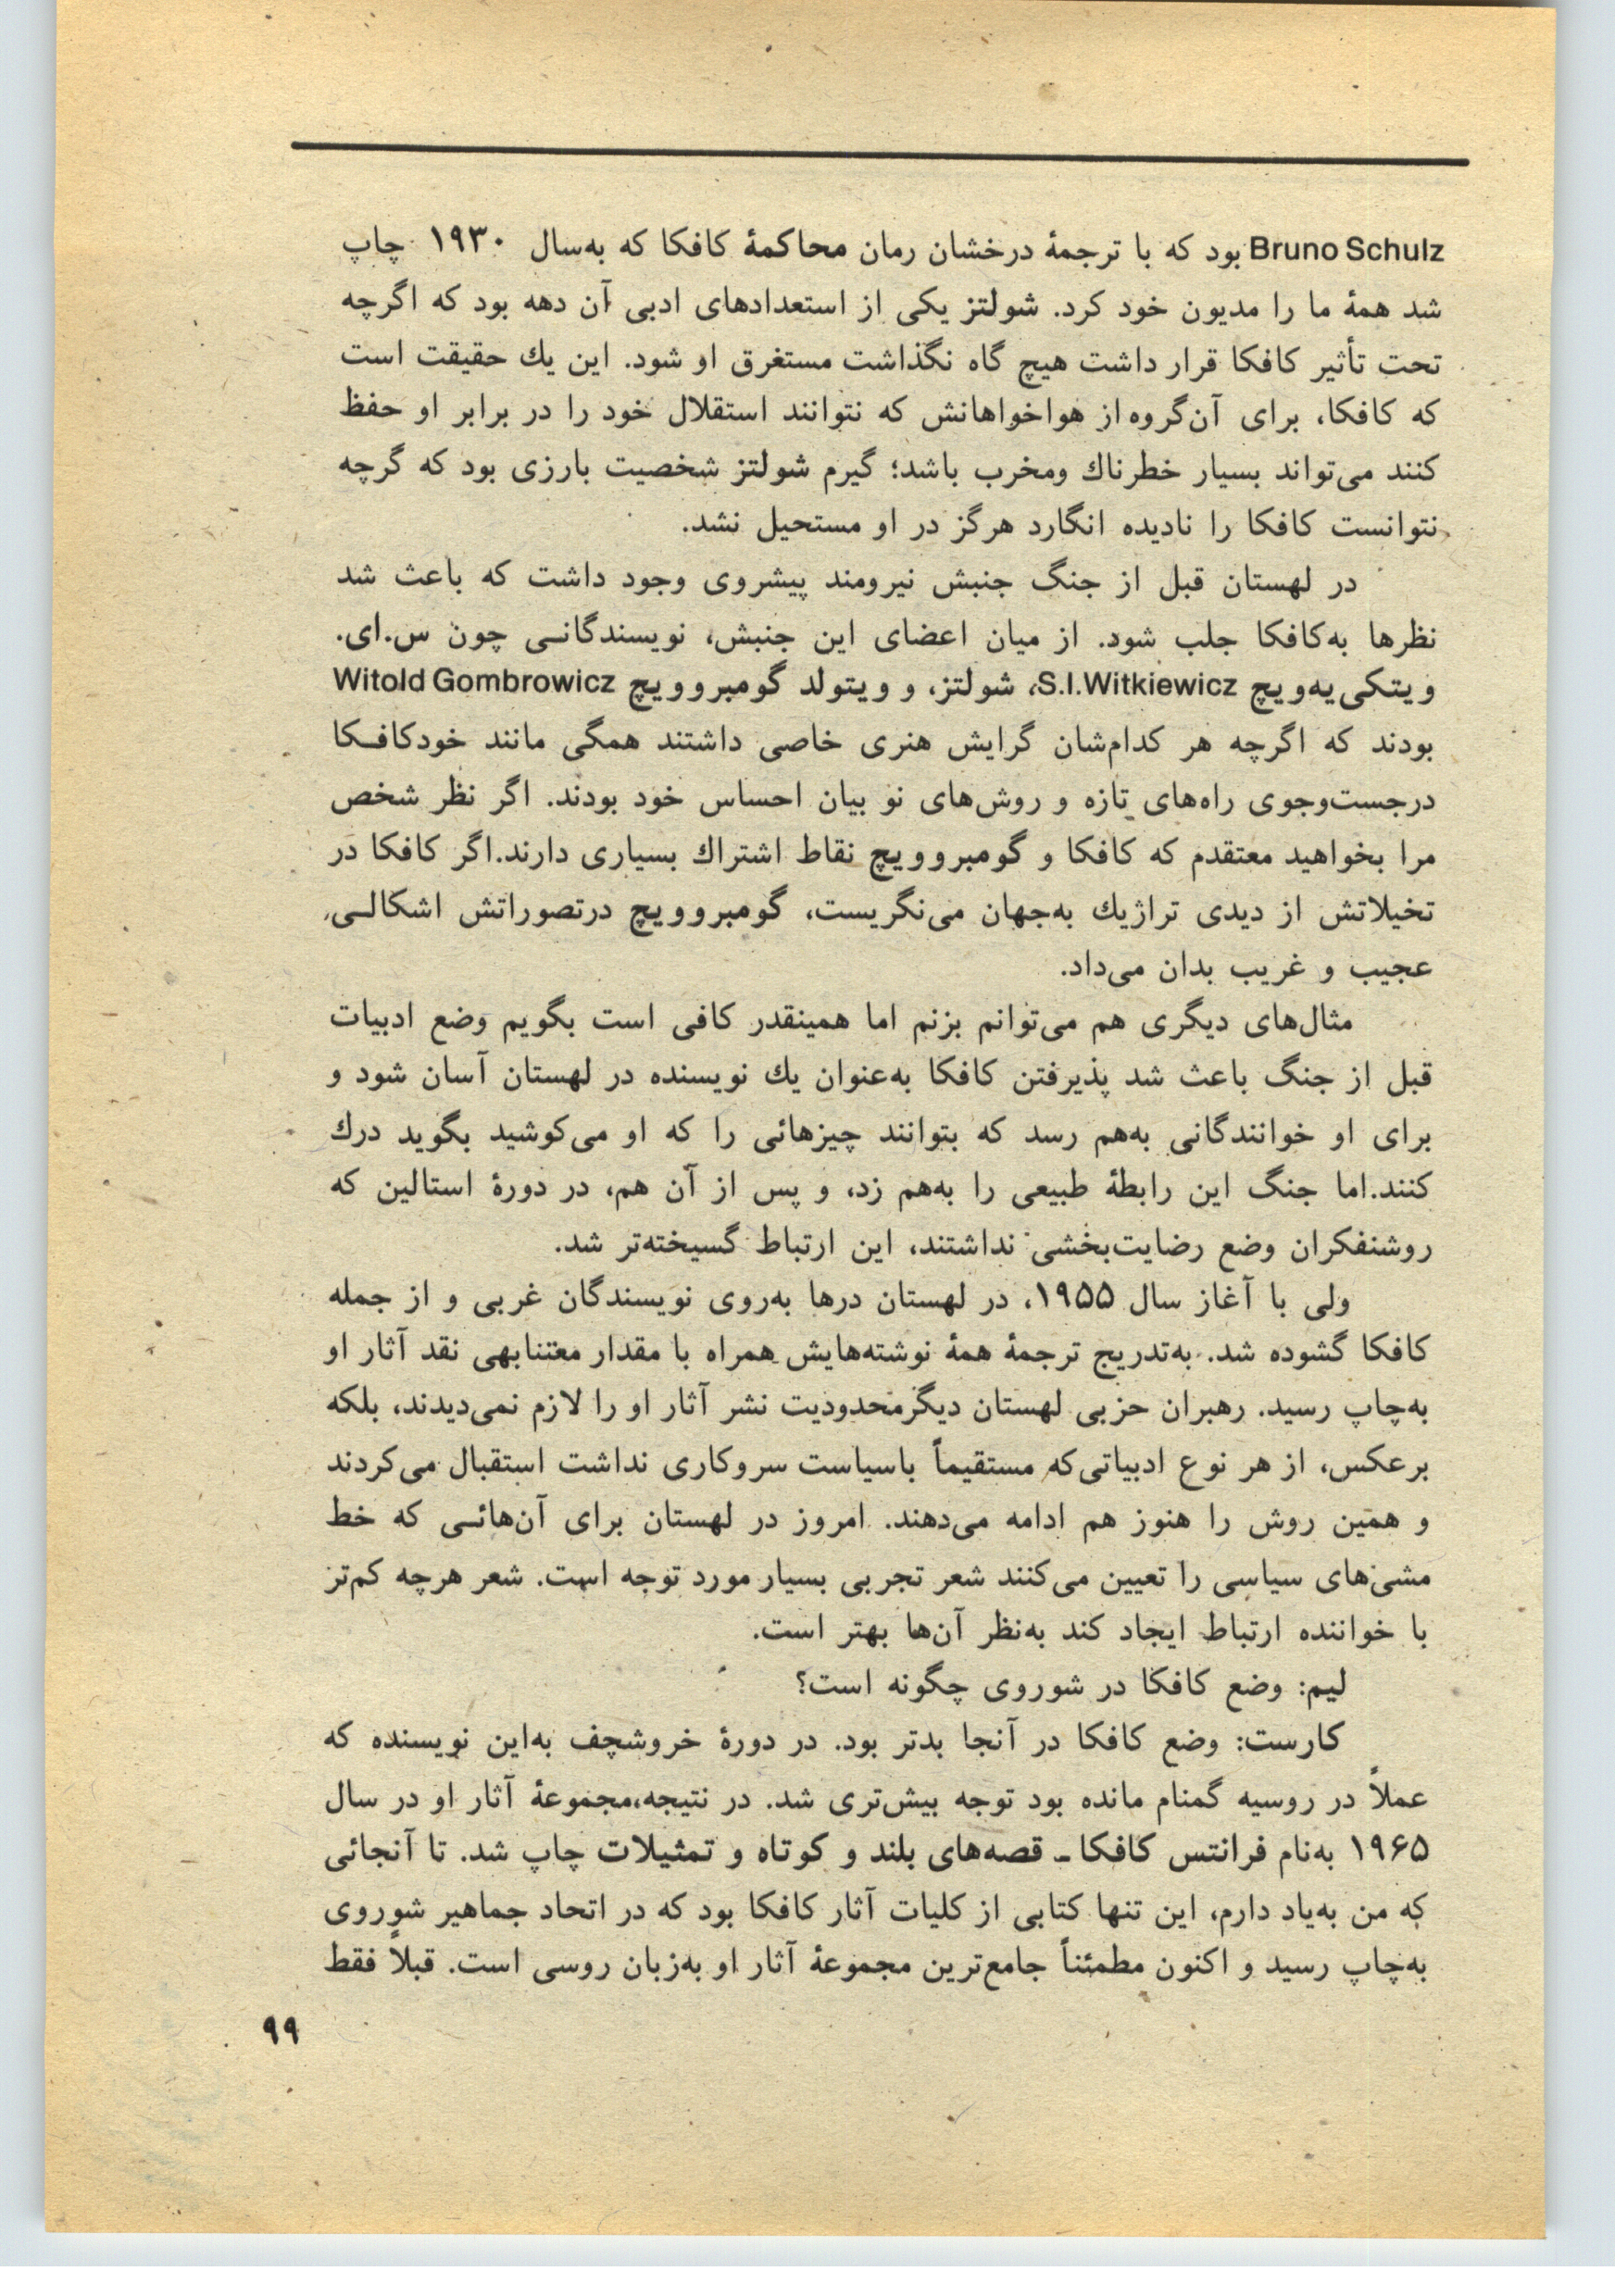 Bruno Schulz بود که با ترجمهٔ درخشان رمان محاکمهٔ کافکا که به‌سال ۱۹۳۰ چاپ
شد همهٔ ما را مدیون خود کرد. شولتز یکی از استعدادهای ادبی آن دهه بود که اگرچه
تحت تأثیر کافکا قرار داشت هیچ گاه نگذاشت مستغرق او شود. این یك حقیقت است
که کافکا، برای آن‌گروه از هواخواهانش که نتوانند استقلال خود را در برابر او حفظ
کنند می‌تواند بسیار خطرناك ومخرب باشد؛ گیرم شولتز شخصیت بارزی بود که گرچه
نتوانست کافکا را نادیده انگارد هرگز در او مستحیل نشد.
در لهستان قبل از جنگ جنبش نیرومند پیشروی وجود داشت که باعث شد
نظرها به‌کافکا جلب شود. از میان اعضای این جنبش، نویسندگانـی چون س.ای.
ویتکی‌یه‌ویچ S.I.Witkiewicz، شولتز، و ویتولد گومبروویچ Witold Gombrowicz
بودند که اگرچه هر کدام‌شان گرایش هنری خاصی داشتند همگی مانند خودکافـکا
درجست‌وجوی راه‌های تازه و روش‌های نو بیان احساس خود بودند. اگر نظر شخص
مرا بخواهید معتقدم که کافکا و گومبروویچ نقاط اشتراك بسیاری دارند.اگر کافکا در
تخیلاتش از دیدی تراژیك به‌جهان می‌نگریست، گومبروویچ درتصوراتش اشکالـی
عجیب و غریب بدان می‌داد.
مثال‌های دیگری هم می‌توانم بزنم اما همینقدر کافی است بگویم وضع ادبیات
قبل از جنگ باعث شد پذیرفتن کافکا به‌عنوان یك نویسنده در لهستان آسان شود و
برای او خوانندگانی به‌هم رسد که بتوانند چیزهائی را که او می‌کوشید بگوید درك
کنند.اما جنگ این رابطهٔ طبیعی را به‌هم زد، و پس از آن هم، در دورهٔ استالین که
روشنفکران وضع رضایت‌بخشی نداشتند، این ارتباط گسیخته‌تر شد.
ولی با آغاز سال ۱۹۵۵، در لهستان درها به‌روی نویسندگان غربی و از جمله
کافکا گشوده شد. به‌تدریج ترجمهٔ همهٔ نوشته‌هایش همراه با مقدار معتنابهی نقد آثار او
به‌چاپ رسید. رهبران حزبی لهستان دیگرمحدودیت نشر آثار او را لازم نمی‌دیدند، بلکه
برعکس، از هر نوع ادبیاتی‌که مستقیماً باسیاست سروکاری نداشت استقبال می‌کردند
و همین روش را هنوز هم ادامه می‌دهند. امروز در لهستان برای آن‌هائـی که خط
مشی‌های سیاسی را تعیین می‌کنند شعر تجربی بسیار مورد توجه است. شعر هرچه کم‌تر
با خواننده ارتباط ایجاد کند به‌نظر آن‌ها بهتر است.
لیم: وضع کافکا در شوروی چگونه است؟
کارست: وضع کافکا در آنجا بدتر بود. در دورهٔ خروشچف به‌این نویسنده که
عملاً در روسیه گمنام مانده بود توجه بیش‌تری شد. در نتیجه،مجموعهٔ آثار او در سال
۱۹۶۵ به‌نام فرانتس کافکا ـ قصه‌های بلند و کوتاه و تمثیلات چاپ شد. تا آنجائی
که من به‌یاد دارم، این تنها کتابی از کلیات آثار کافکا بود که در اتحاد جماهیر شوروی
به‌چاپ رسید و اکنون مطمئناً جامع‌ترین مجموعهٔ آثار او به‌زبان روسی است. قبلاً فقط
۹۹